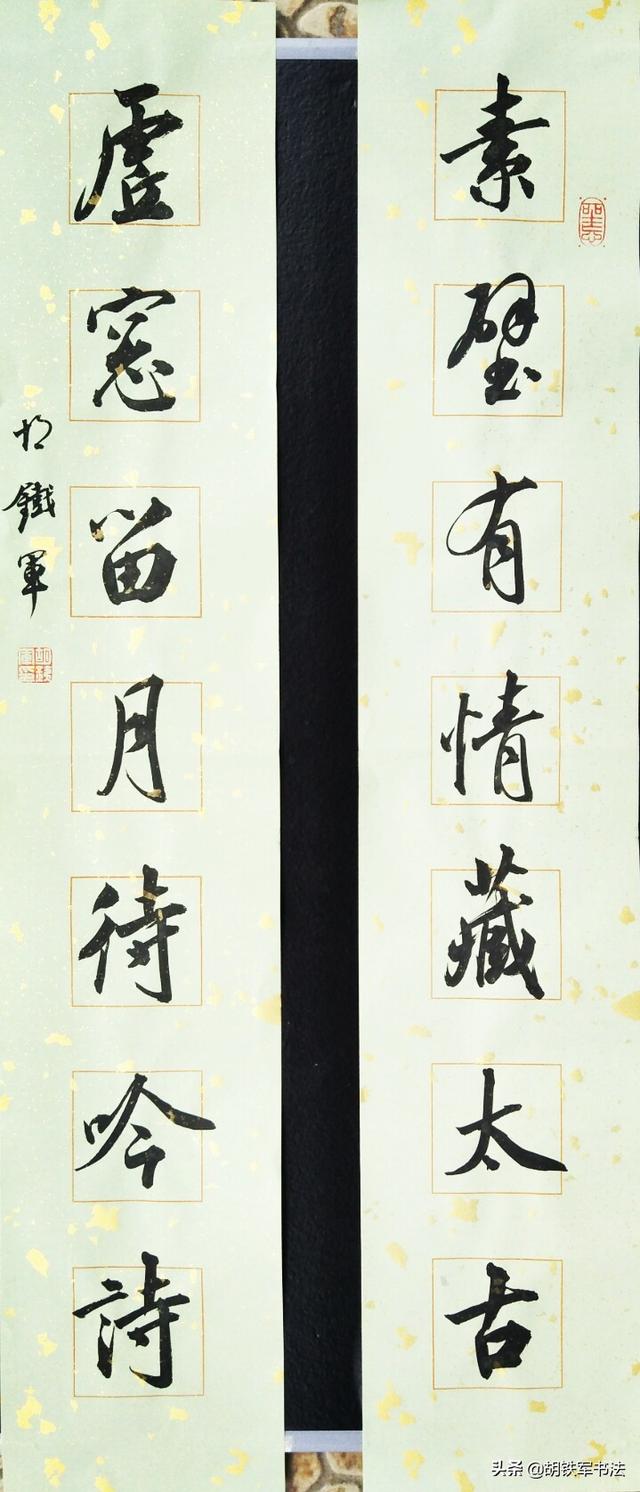 素壁有情藏太古
虚窓留月待吟詩
胡鐵軍
头条 @胡铁军书法